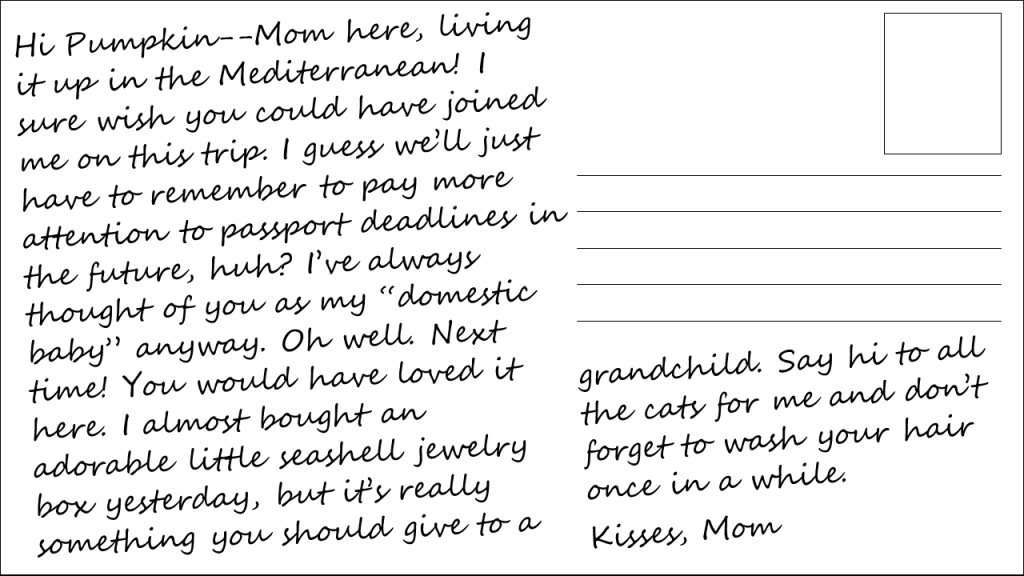 Hi Pumpkin--Mom here, living
it up in the Mediterranean! I
sure wish you could have joined
me on this trip. I guess we'll just
have to remember to pay more
attention to passport deadlines in
the future, huh? I've always
thought of you as my “domestic
baby” anyway. Oh well. Next
time! You would have loved it
here. I almost bought an
adorable little seashell jewelry
box yesterday, but it's really
something you should give to a
grandchild. Say hi to all
the cats for me and don't
forget to wash your hair
once in a while.
Kisses, Mom